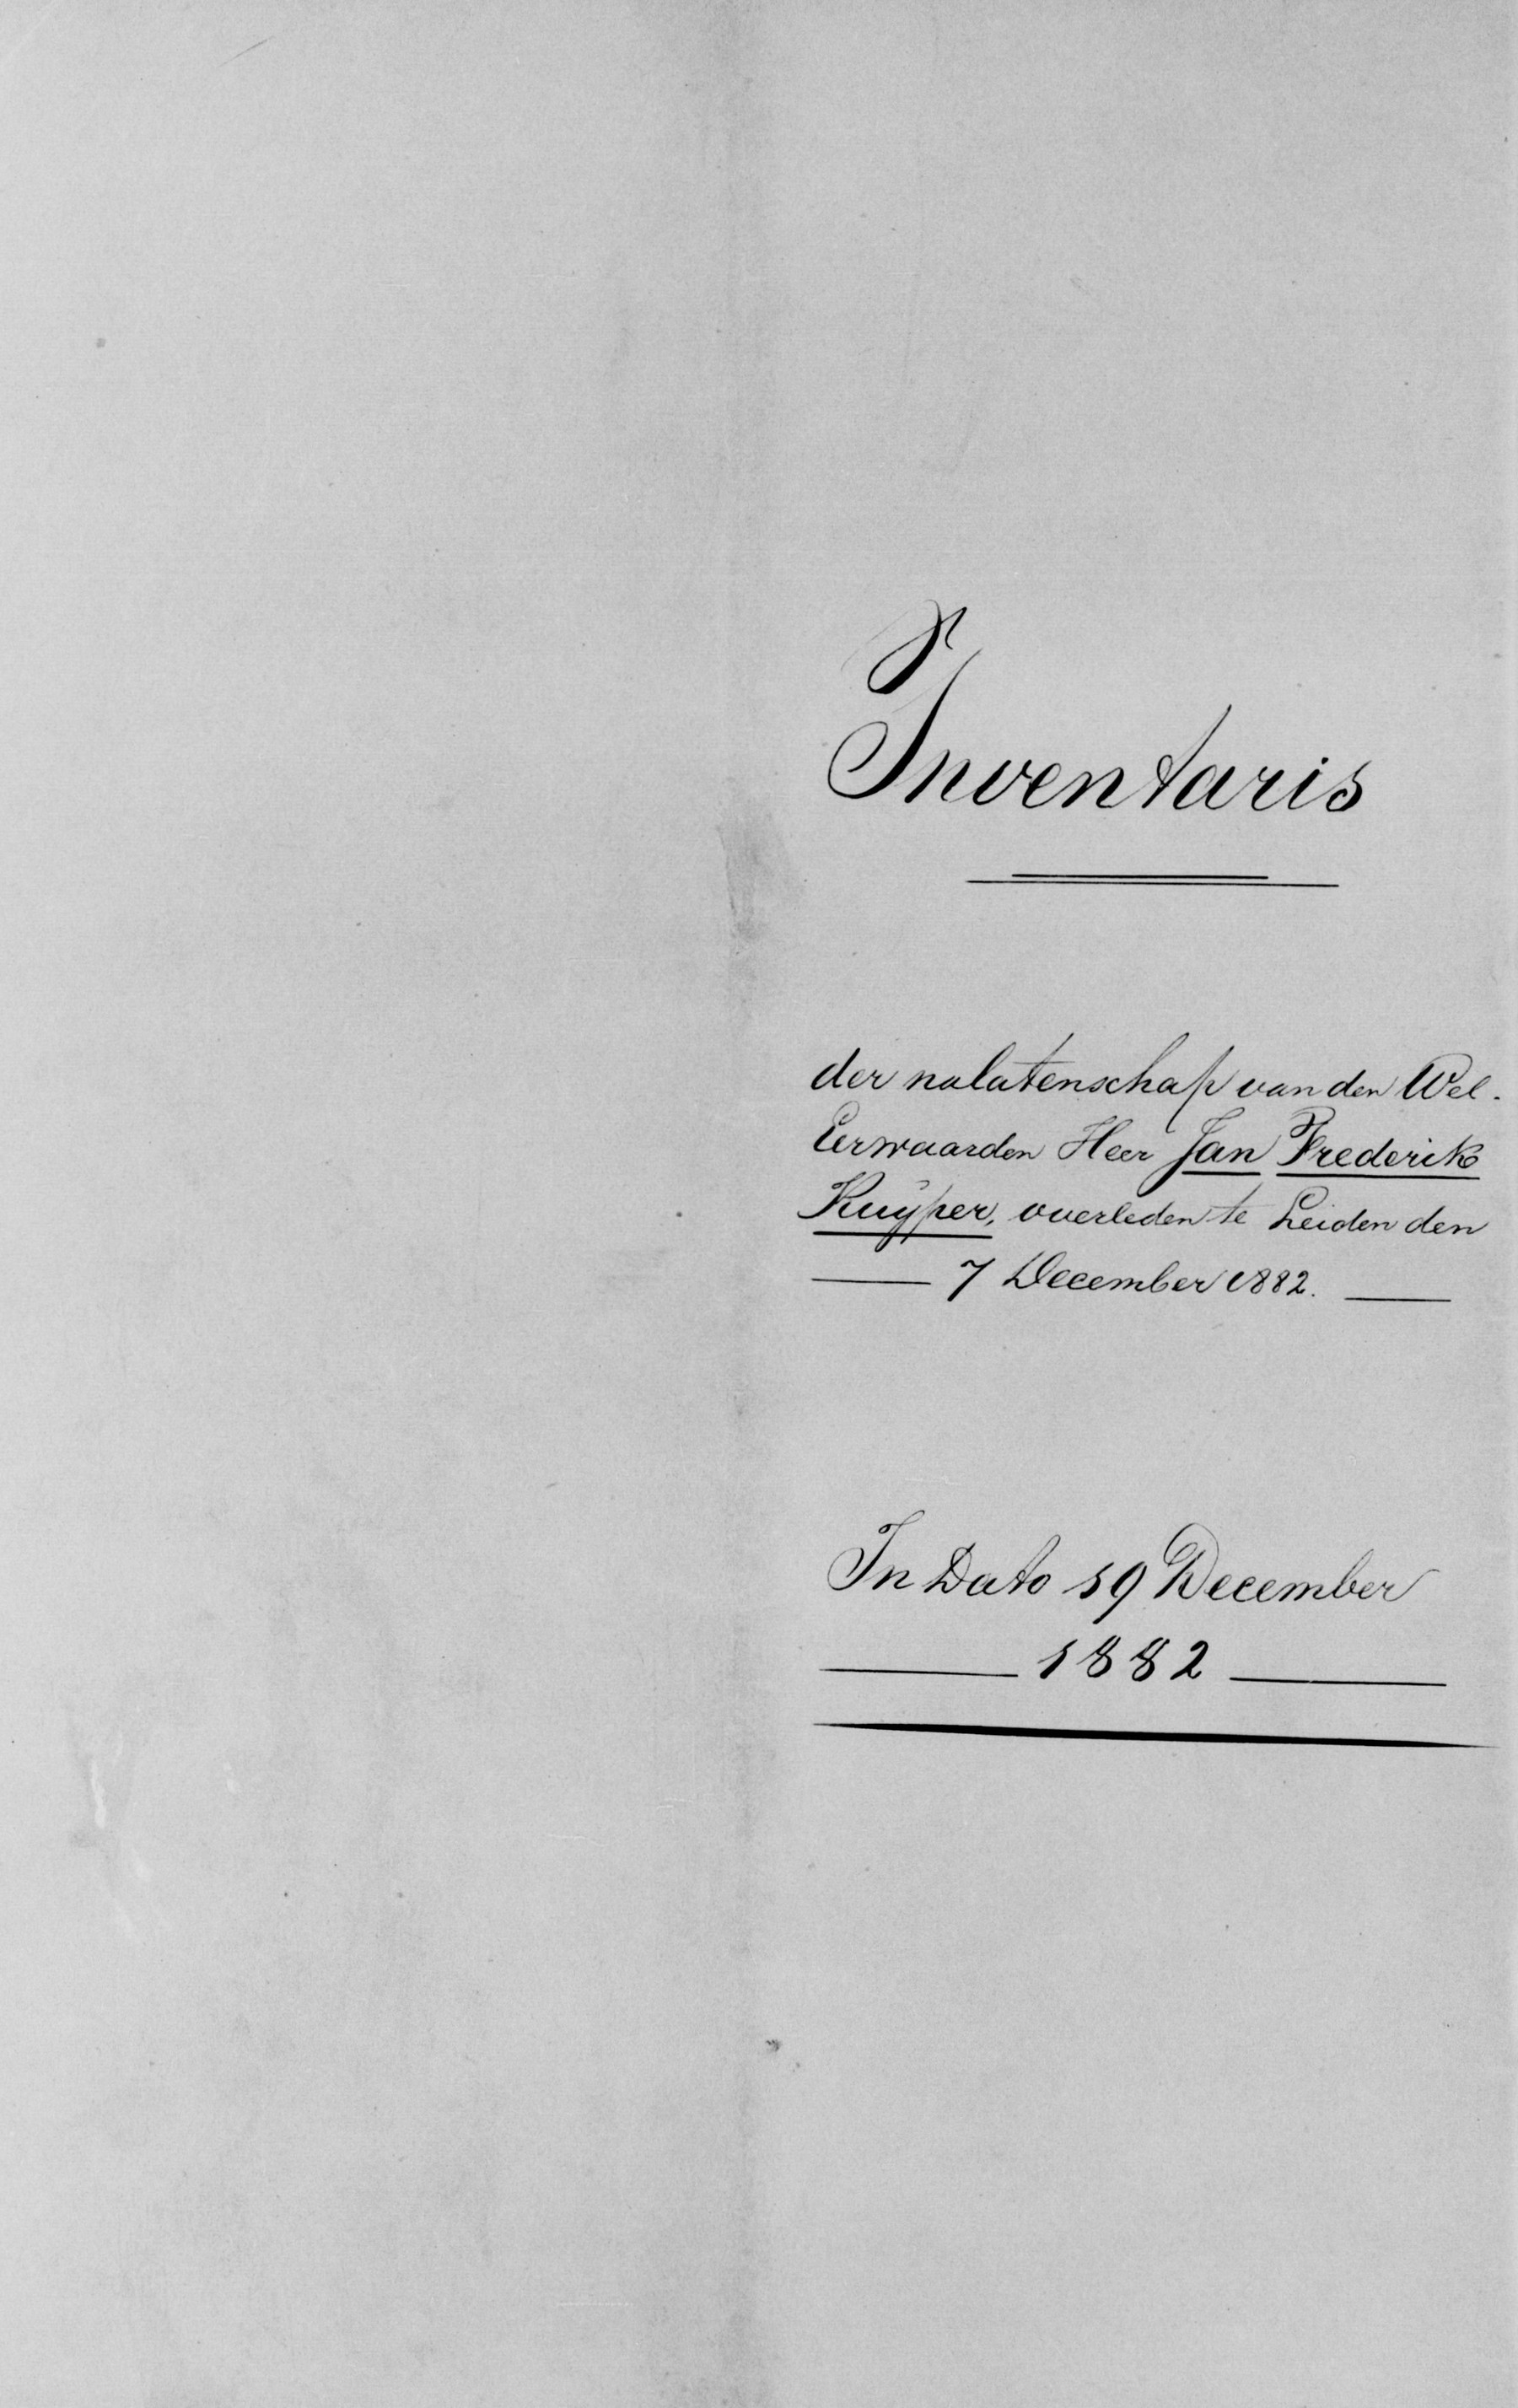 Inventaris
der nalatenschap van den Wel-
Eerwaarden Heer Jan Frederik
Kuÿper, overleden te Leiden den
7 December 1882.
In Dato 19 December
1882